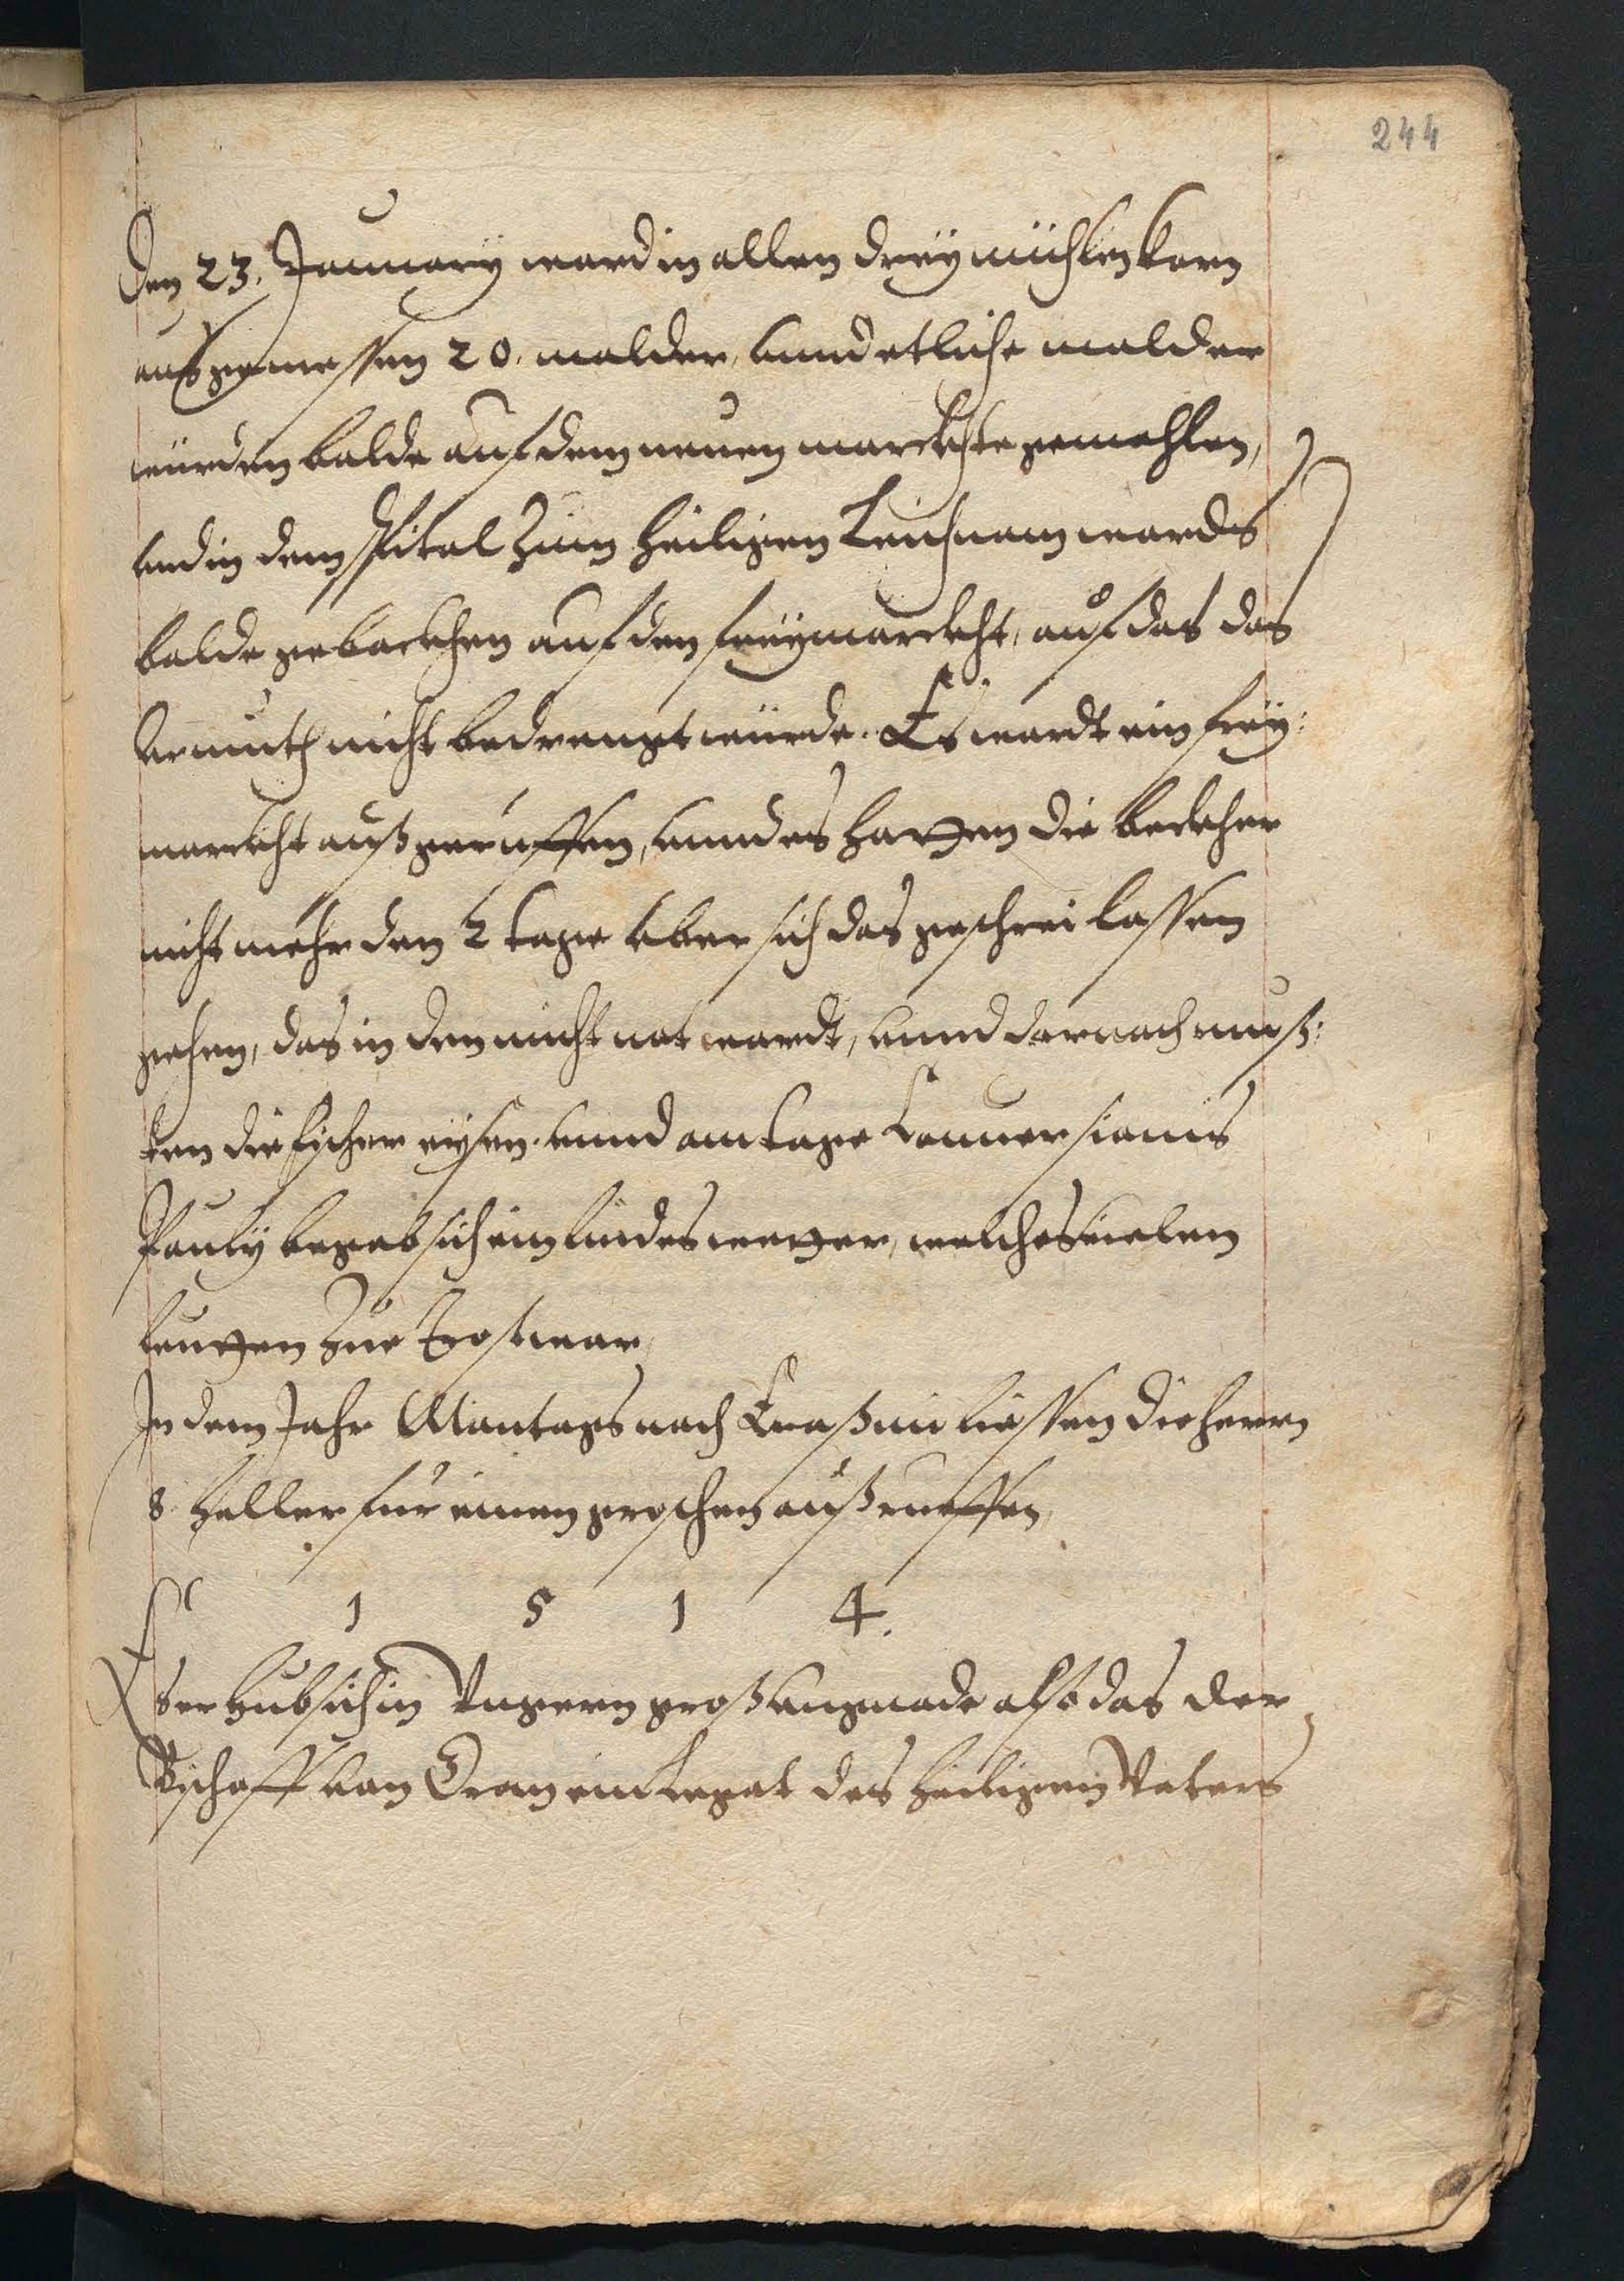 244
Den 23. January ward in allen dreÿ mühlen korn
ausgemessen 20. malder, vnnd etliche malder
würden balde auf dem neuen marckhte gemahlen,
vnd in dem spital zum heiligen Leichnam wards
balde gebackhen auf den freÿmarckht, auf das das
Armuth nicht bedrengt würde. Es wardt ein freÿ:
marckht außgeruffen, vnnd es hatten die beckher
nicht mehr den 2 tage vber sich das geschrei lassen
gehen, das in den nicht not wardt, vnnd darnach muß:
ten die fischer eÿsen. vnnd am tage Conversionis
Pauly begab sich ein lindes wetter, welches vielen
leutten zue trost war,
In dem Jahr Montags nach Erasmi liessen die herrn
8 heller für einen groschen außrueffen,
1 5 1 4.
Es erhub sich in Vngern groß vngnade also das der
Bischoff von Gran ein Legat des heiligen Vaters